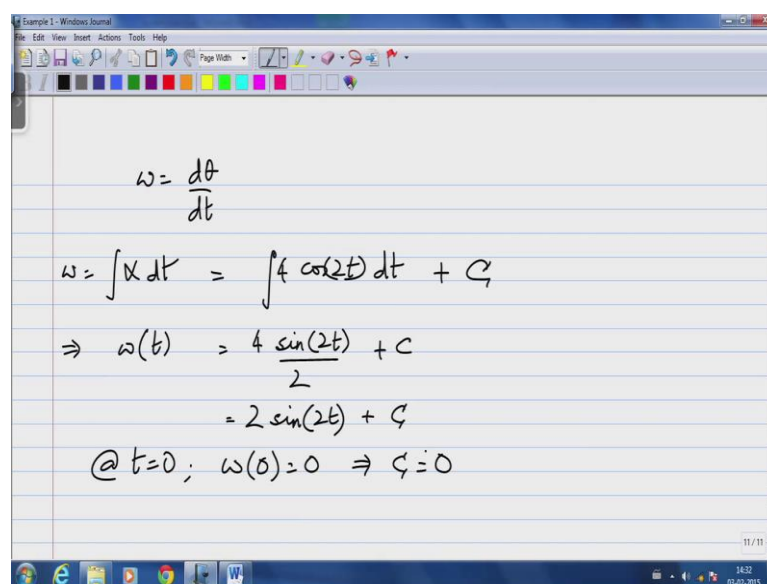 Example 1 - Windows Journal
File Edit View Insert Actions Tools Help
Page Width
ω = dθ/dt
ω = ∫α dt = ∫4 cos(2t) dt + C₁
⇒ ω(t) = 4 sin(2t)/2 + C
= 2 sin(2t) + C₁
@ t=0; ω(0)=0 ⇒ C₁=0
11 / 11
14:32
03-02-2015